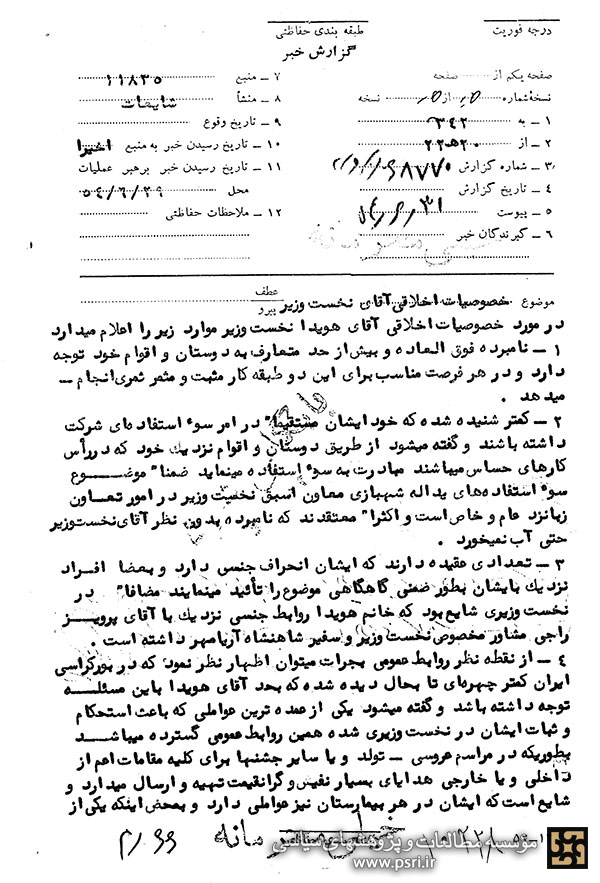 درجه فوریت
طبقه بندی حفاظتی
گزارش خبر
صفحه یکم از صفحه
نسخهٔ شماره از نسخه
۱ ـ به ۳۴۲
۲ ـ از ۲۰ه۲۲
۳ ـ شماره گزارش
۴ ـ تاریخ گزارش
۵ ـ پیوست
۶ ـ گیرندگان خبر
۷ ـ منبع ۱۱۸۳۵
۸ ـ منشأ شایعات
۹ ـ تاریخ وقوع
۱۰ ـ تاریخ رسیدن خبر به منبع اخیرا
۱۱ ـ تاریخ رسیدن خبر برهبر عملیات
محل ۵۴/۶/۲۹
۱۲ ـ ملاحظات حفاظتی
موضوع خصوصیات اخلاقی آقای نخست وزیر عطف
پیرو
در مورد خصوصیات اخلاقی آقای هویدا نخست وزیر موارد زیر را اعلام میدارد
۱ ـ نامبرده فوق العاده و بیش از حد متعارف به دوستان و اقوام خود توجه
دارد و در هر فرصت مناسب برای این دو طبقه کار مثبت و مثمر ثمری انجام ـ
میدهد .
۲ ـ کمتر شنیده شده که خود ایشان مستقیما" در امر سوء استفاده‌ای شرکت
داشته باشند و گفته میشود از طریق دوستان و اقوام نزدیک خود که در رأس
کارهای حساس میباشند مبادرت به سوء استفاده مینماید ضمنا" موضوع
سوء استفاده‌های یداله شهبازی معاون اسبق نخست وزیر در امور تعاون
زبانزد عام و خاص است و اکثرا" معتقدند که نامبرده بدون نظر آقای نخست وزیر
حتی آب نمیخورد .
۳ ـ تعدادی عقیده دارند که ایشان انحراف جنسی دارد و بعضا افراد
نزدیک بایشان بطور ضمنی گاهگاهی موضوع را تأئید مینمایند مضافا" در
نخست وزیری شایع بود که خانم هویدا روابط جنسی نزدیک با آقای پرویز
راجی مشاور مخصوص نخست وزیر و سفیر شاهنشاه آریامهر داشته است .
۴ ـ از نقطه نظر روابط عمومی بجرات میتوان اظهار نظر نمود که در بورکراسی
ایران کمتر چهره‌ای تا بحال دیده شده که بحد آقای هویدا باین مسئله
توجه داشته باشد و گفته میشود یکی از عمده ترین عواملی که باعث استحکام
و ثبات ایشان در نخست وزیری شده همین روابط عمومی گسترده میباشد
بطوریکه در مراسم عروسی ـ تولد و یا سایر جشنها برای کلیه مقامات اعم از
داخلی و یا خارجی هدایای بسیار نفیس و گرانقیمت تهیه و ارسال میدارد و
شایع است که ایشان در هر بیمارستان نیز عواملی دارد و بمحض اینکه یکی از
موسسه مطالعات و پژوهشهای سیاسی
www.psri.ir